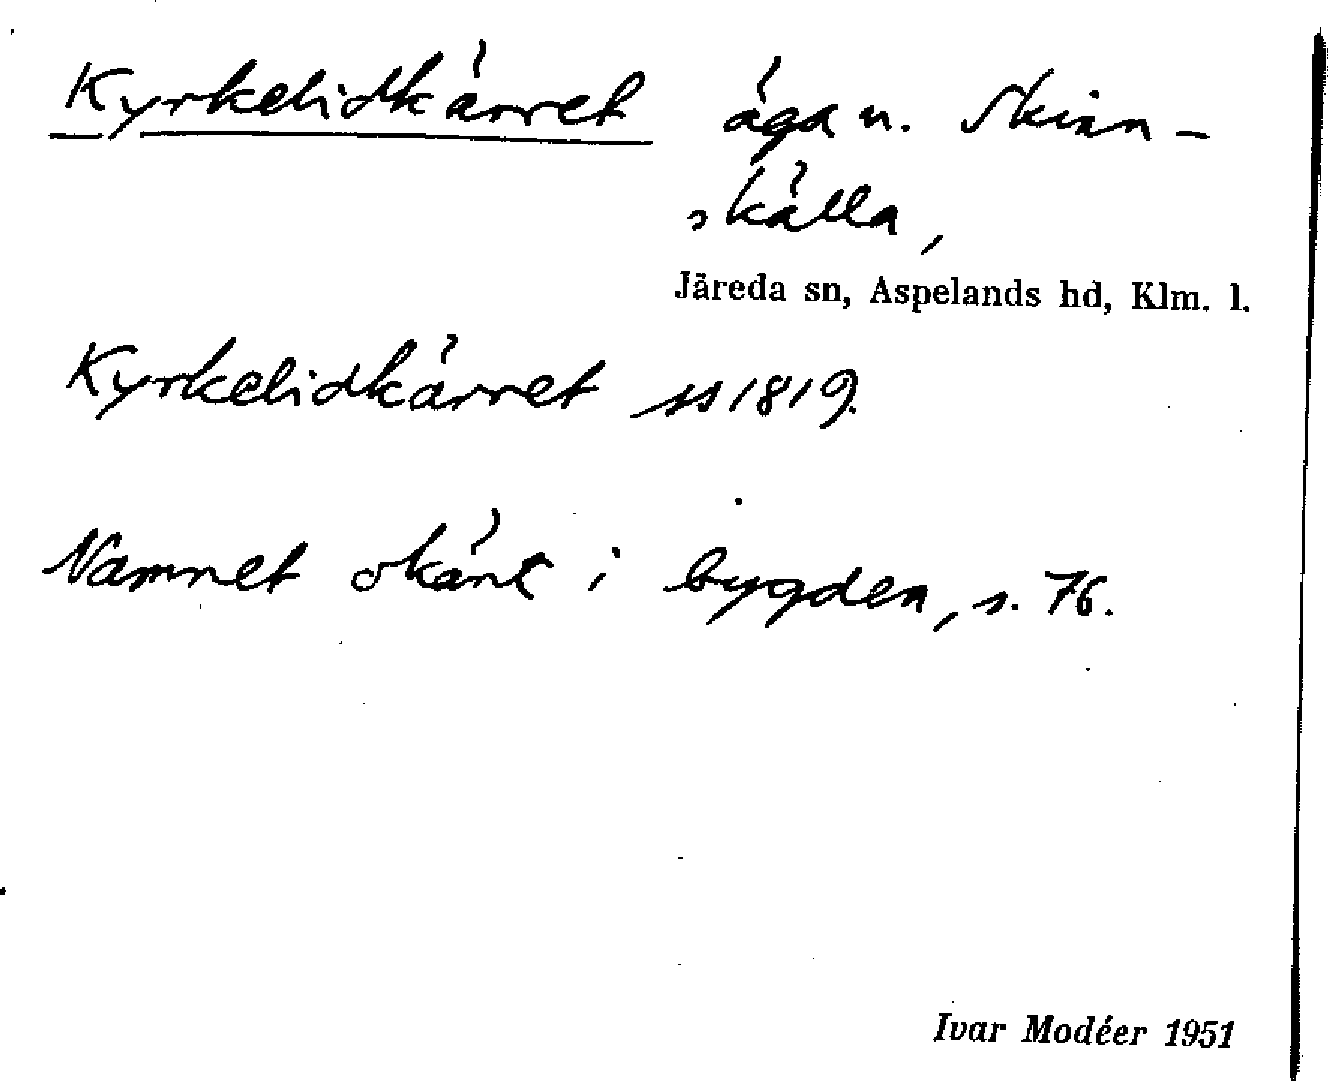 Kyrkelidkärret ägan. Skinn-
skälla,
Järeda sn, Aspelands hd, Klm. l.
Kyrkelidkärret ss 1819.
Namnet okänt i bygden, s. 76.
Ivar Modéer 1951